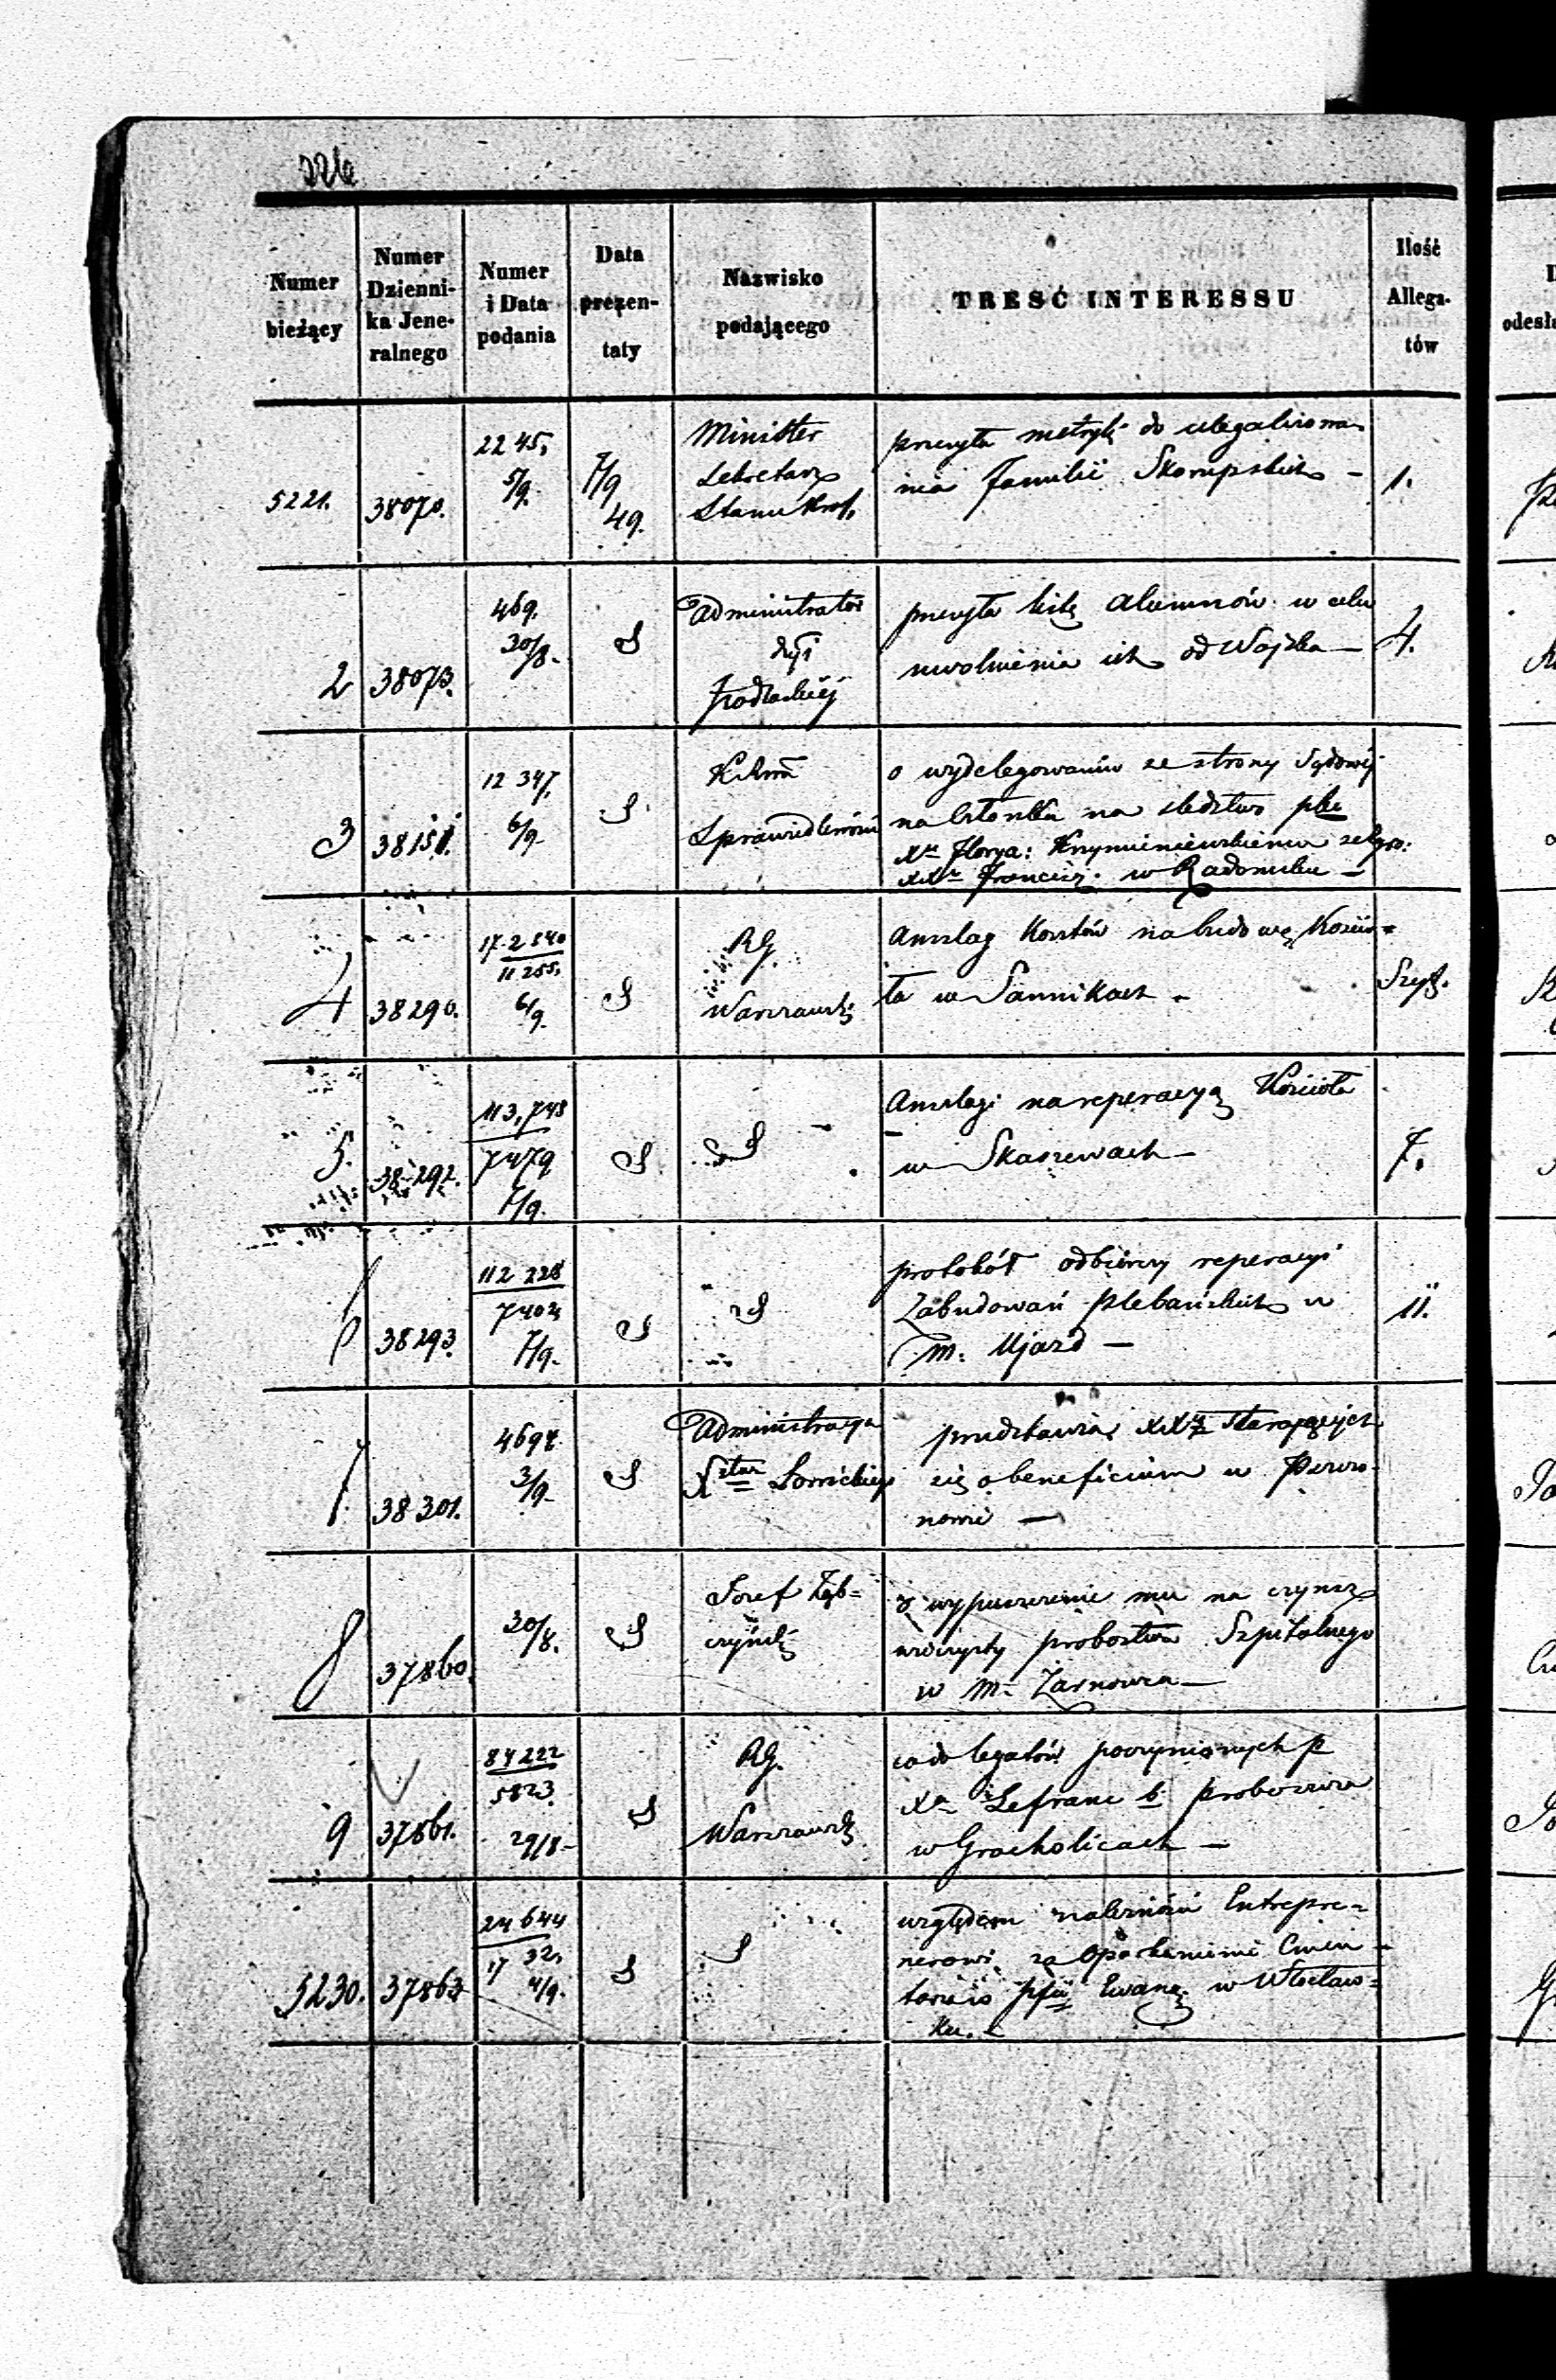 326
Numer bieżący
Numer Dzienni-ka Jene-ralnego
Numer i Data podania
Data prezen-taty
Nazwisko podającego
TREŚĆ INTERESSU
Ilość Allega-tów
5221.
38070.
2245,
5/9.
7/9
49.
Minister
Sekretarz
Stanu Król.
przesyła metrykę do ulegalizowa-
nia Familii Skorupskich –
1.
2
38073.
469.
30/8.
S
Administrator
Podlaskiéj
przesyła listę Alumnów w celu
uwolnienia ich od Wojska –
4.
3
38151.
12347,
6/9
S
Sprawiedliwości
o wydelegowanie ze strony Sądowéj
na Członka na śledztwo
w Radomsku –
4
38290.
17.2540
11255,
6/9.
S
RG
Warszawski
Anszlag Kosztów na budowę Kościo-
ła w Sannikach –
Szyt.
5.
38292.
113,748
7479
7/9.
S
S
Anszlagi na reperacyą Kościoła
w Skaszewach –
7.
6
38293.
112 228
7/9.
S
S
protokół odbiorczy reperacyi
Zabudowań Plebańskich w
m. Ujazd –
11.
7
38301.
3/9.
S
Administracya
Łowickiego
przedstawia starających
się o beneficium w
8
37860.
30/8.
S
Józef
o wypuszczenie mu na czynsz
wieczysty probostwa Szpitalnego
w m. Żarnowca –
9
37861.
84222
5823.
29/8 –
S
RG.
Warszawski
co do legatów poczynionych p
Xa Lefranc b. proboszcza
w Grocholicach –
5230.
37863
24644
17 32,
4/9.
S
S
względem należności Entrepre-
nerowi za Oparkanienie Cmen-
tarza Ewang. w Włocław-
ku. –